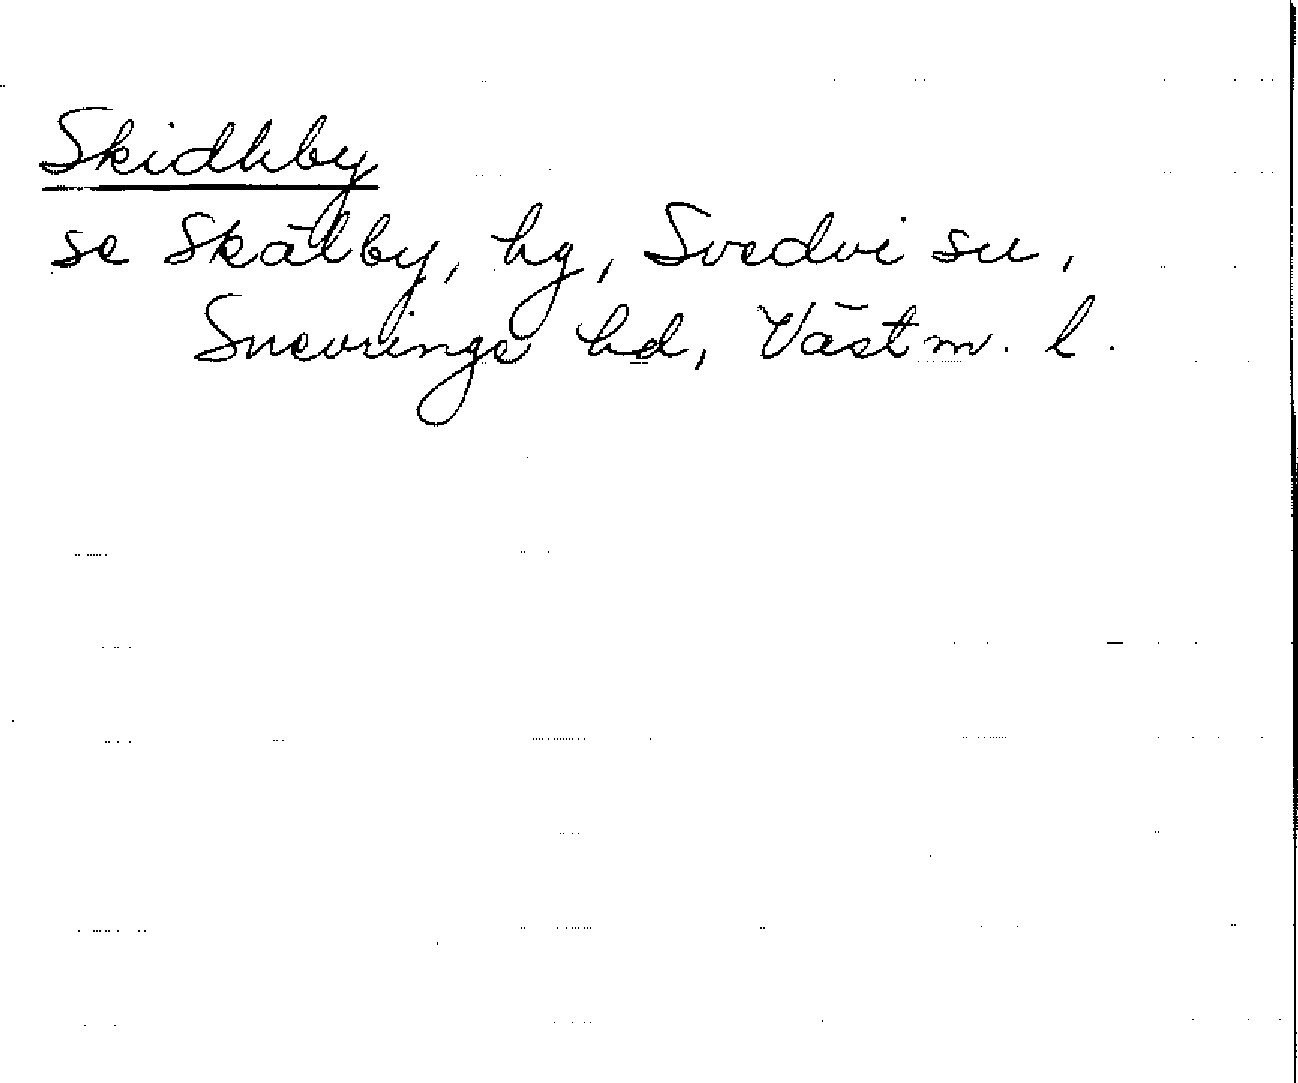 Skidhby
se Skälby, hg, Svedvi sn,
Snevringe hd, Västm. l.